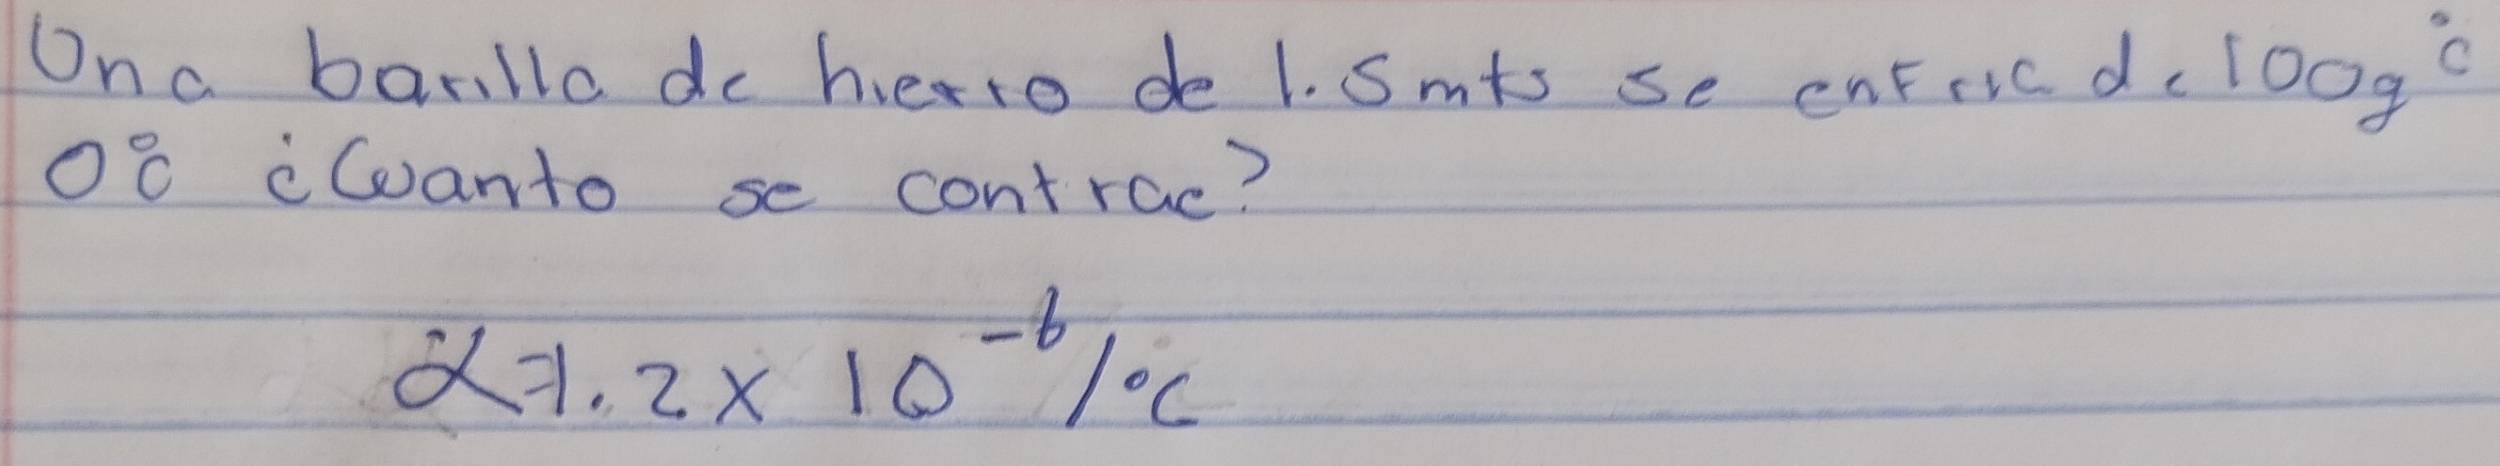 Una barilla de hierro de 1.5mts se enfria de 100g °c
0°c ¿Cuanto se contrae?
α=1.2x10⁻⁶/°c